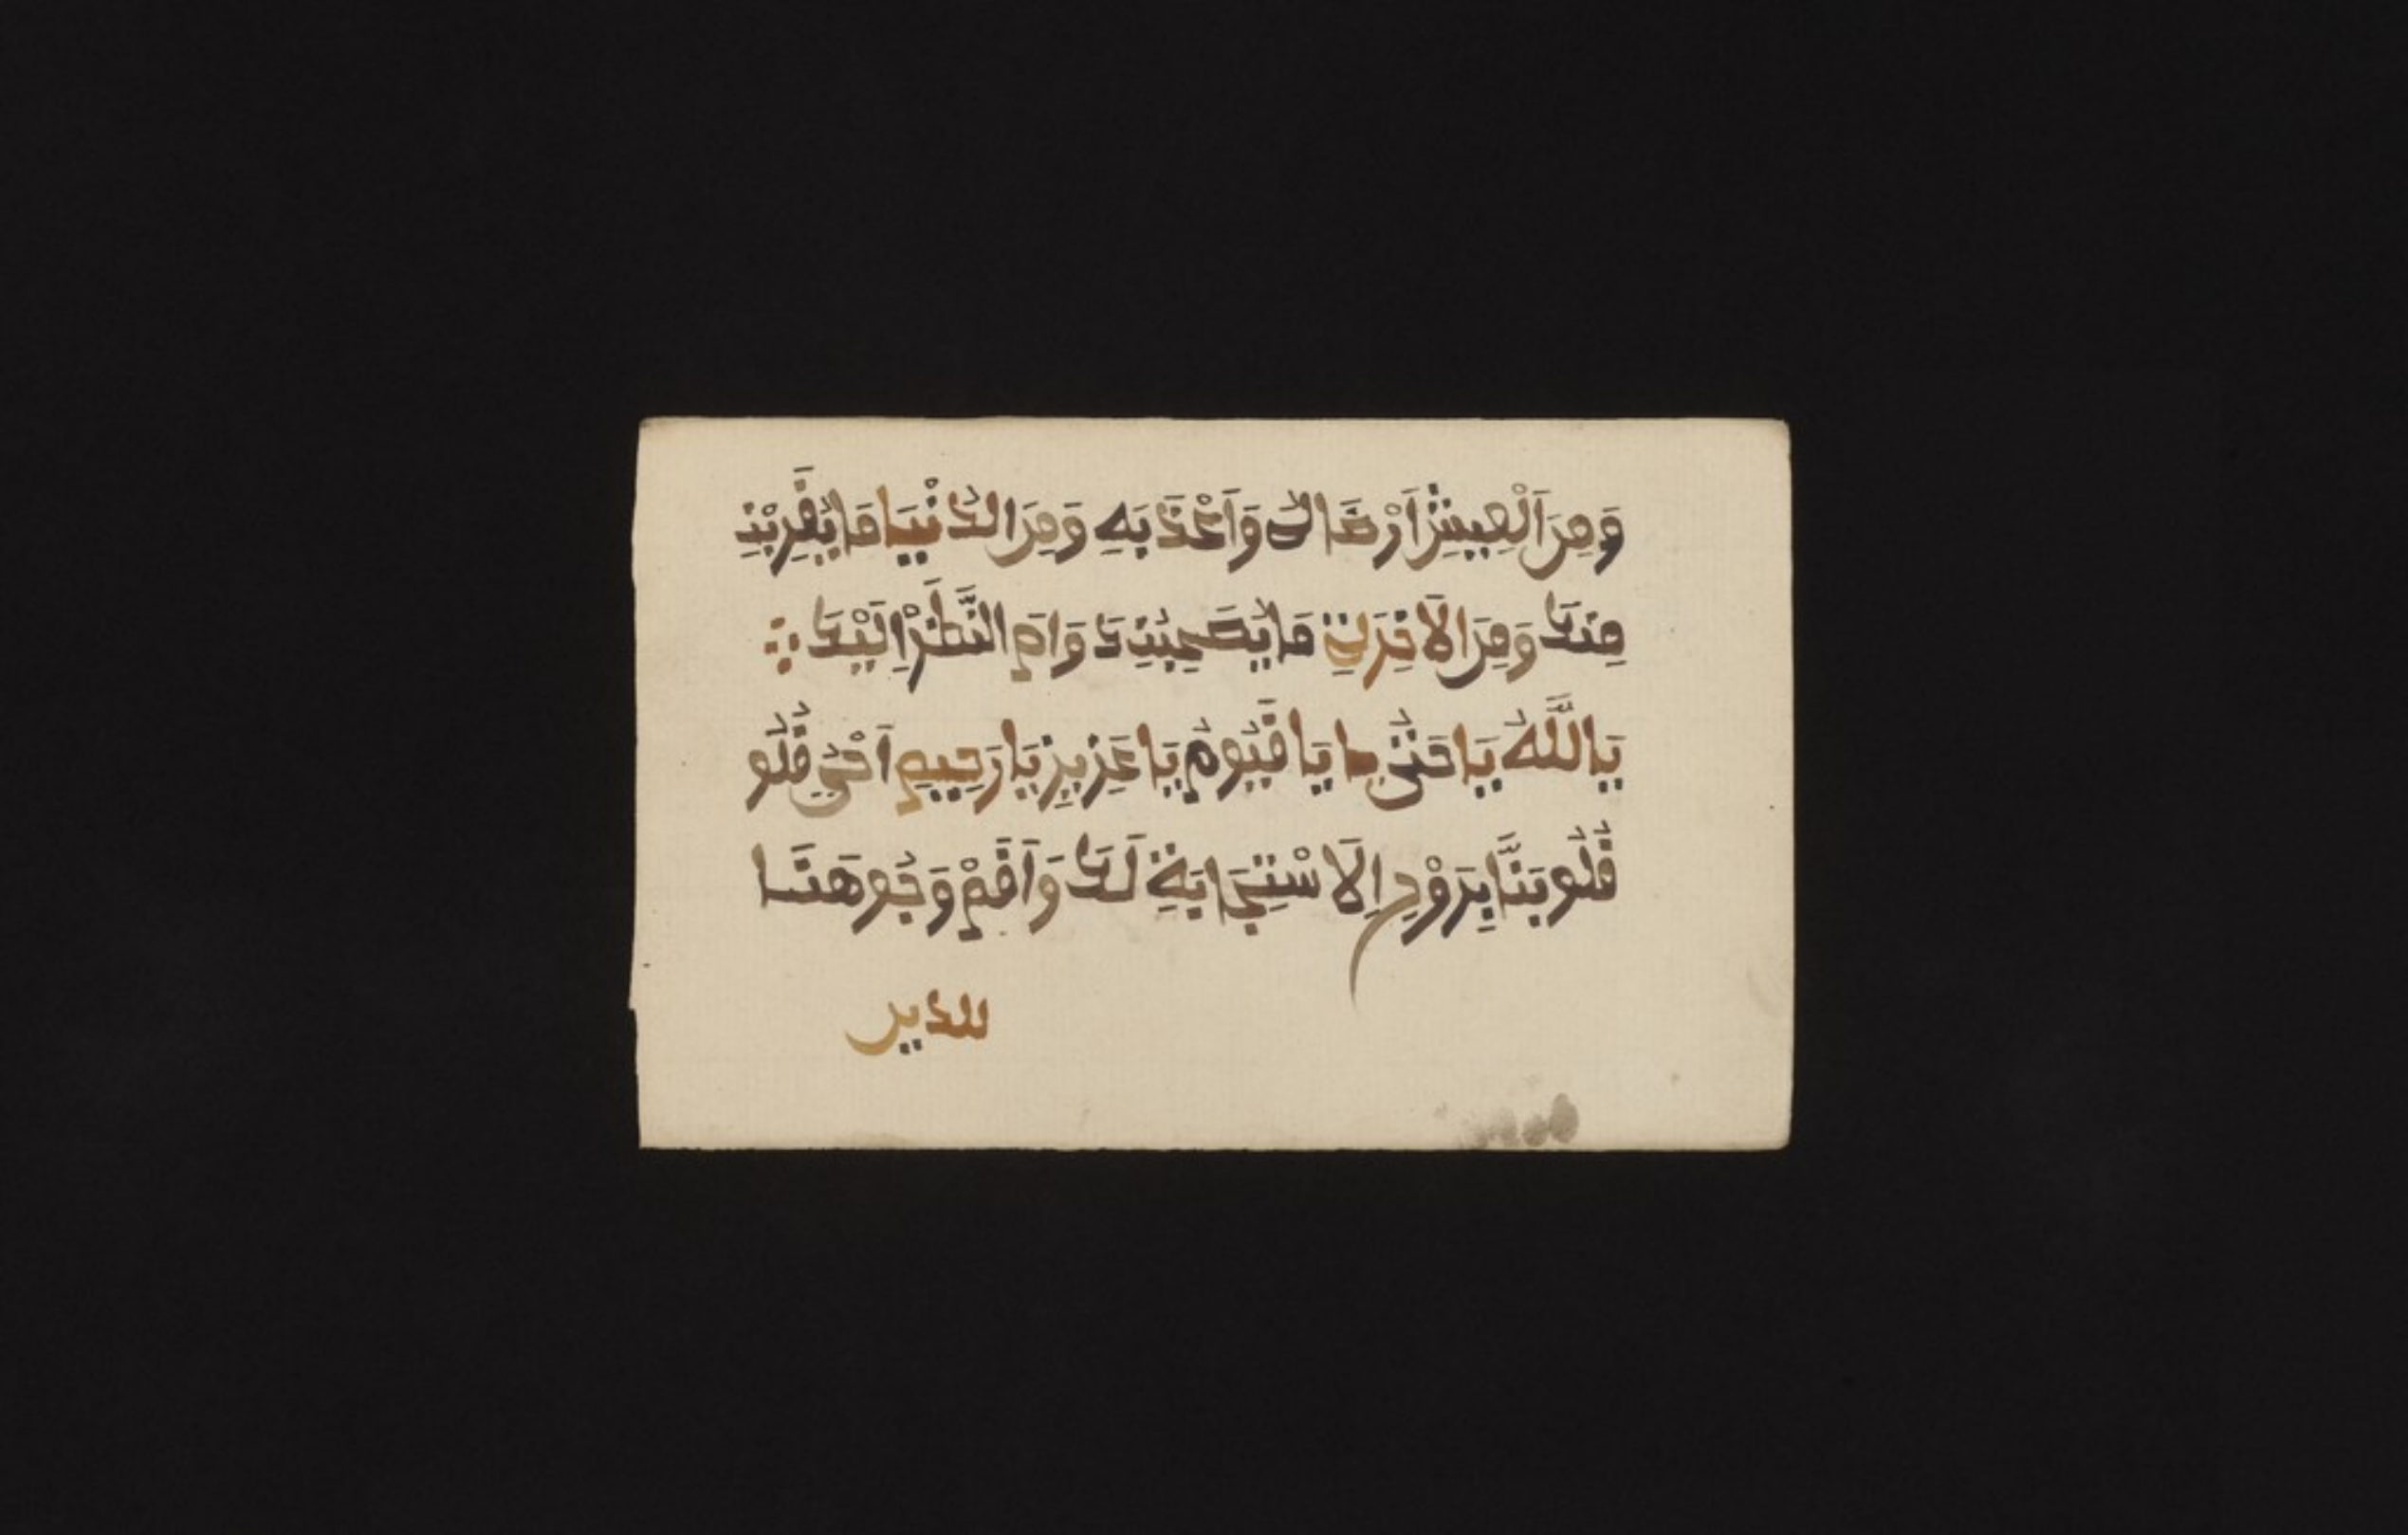 وَمِنَ اَلْعِيشِ اَرْضَاكَ وَاَعْذَبَهِ وَمِنَ الدُّنْيَا مَا يُقَرِّبْنِ
مِنكَ وَمِنَ الَاخِرَةِ مَا يُصَحِبُنِكَ وَاَمِ النَّظَرْاِلَيْكَ
يَا اللَّهُ يَا حَىُّ يَا قَيُّومُ يَا عَزِيزِ يَا رَحِيمِ اَحْيِ قُلُو
قُلُوبَنَّا بِرَوْحِ اِلَاسْتِجَابَةِ لَكَ وَاَقَمْ وَجُوهَنَا
للدين